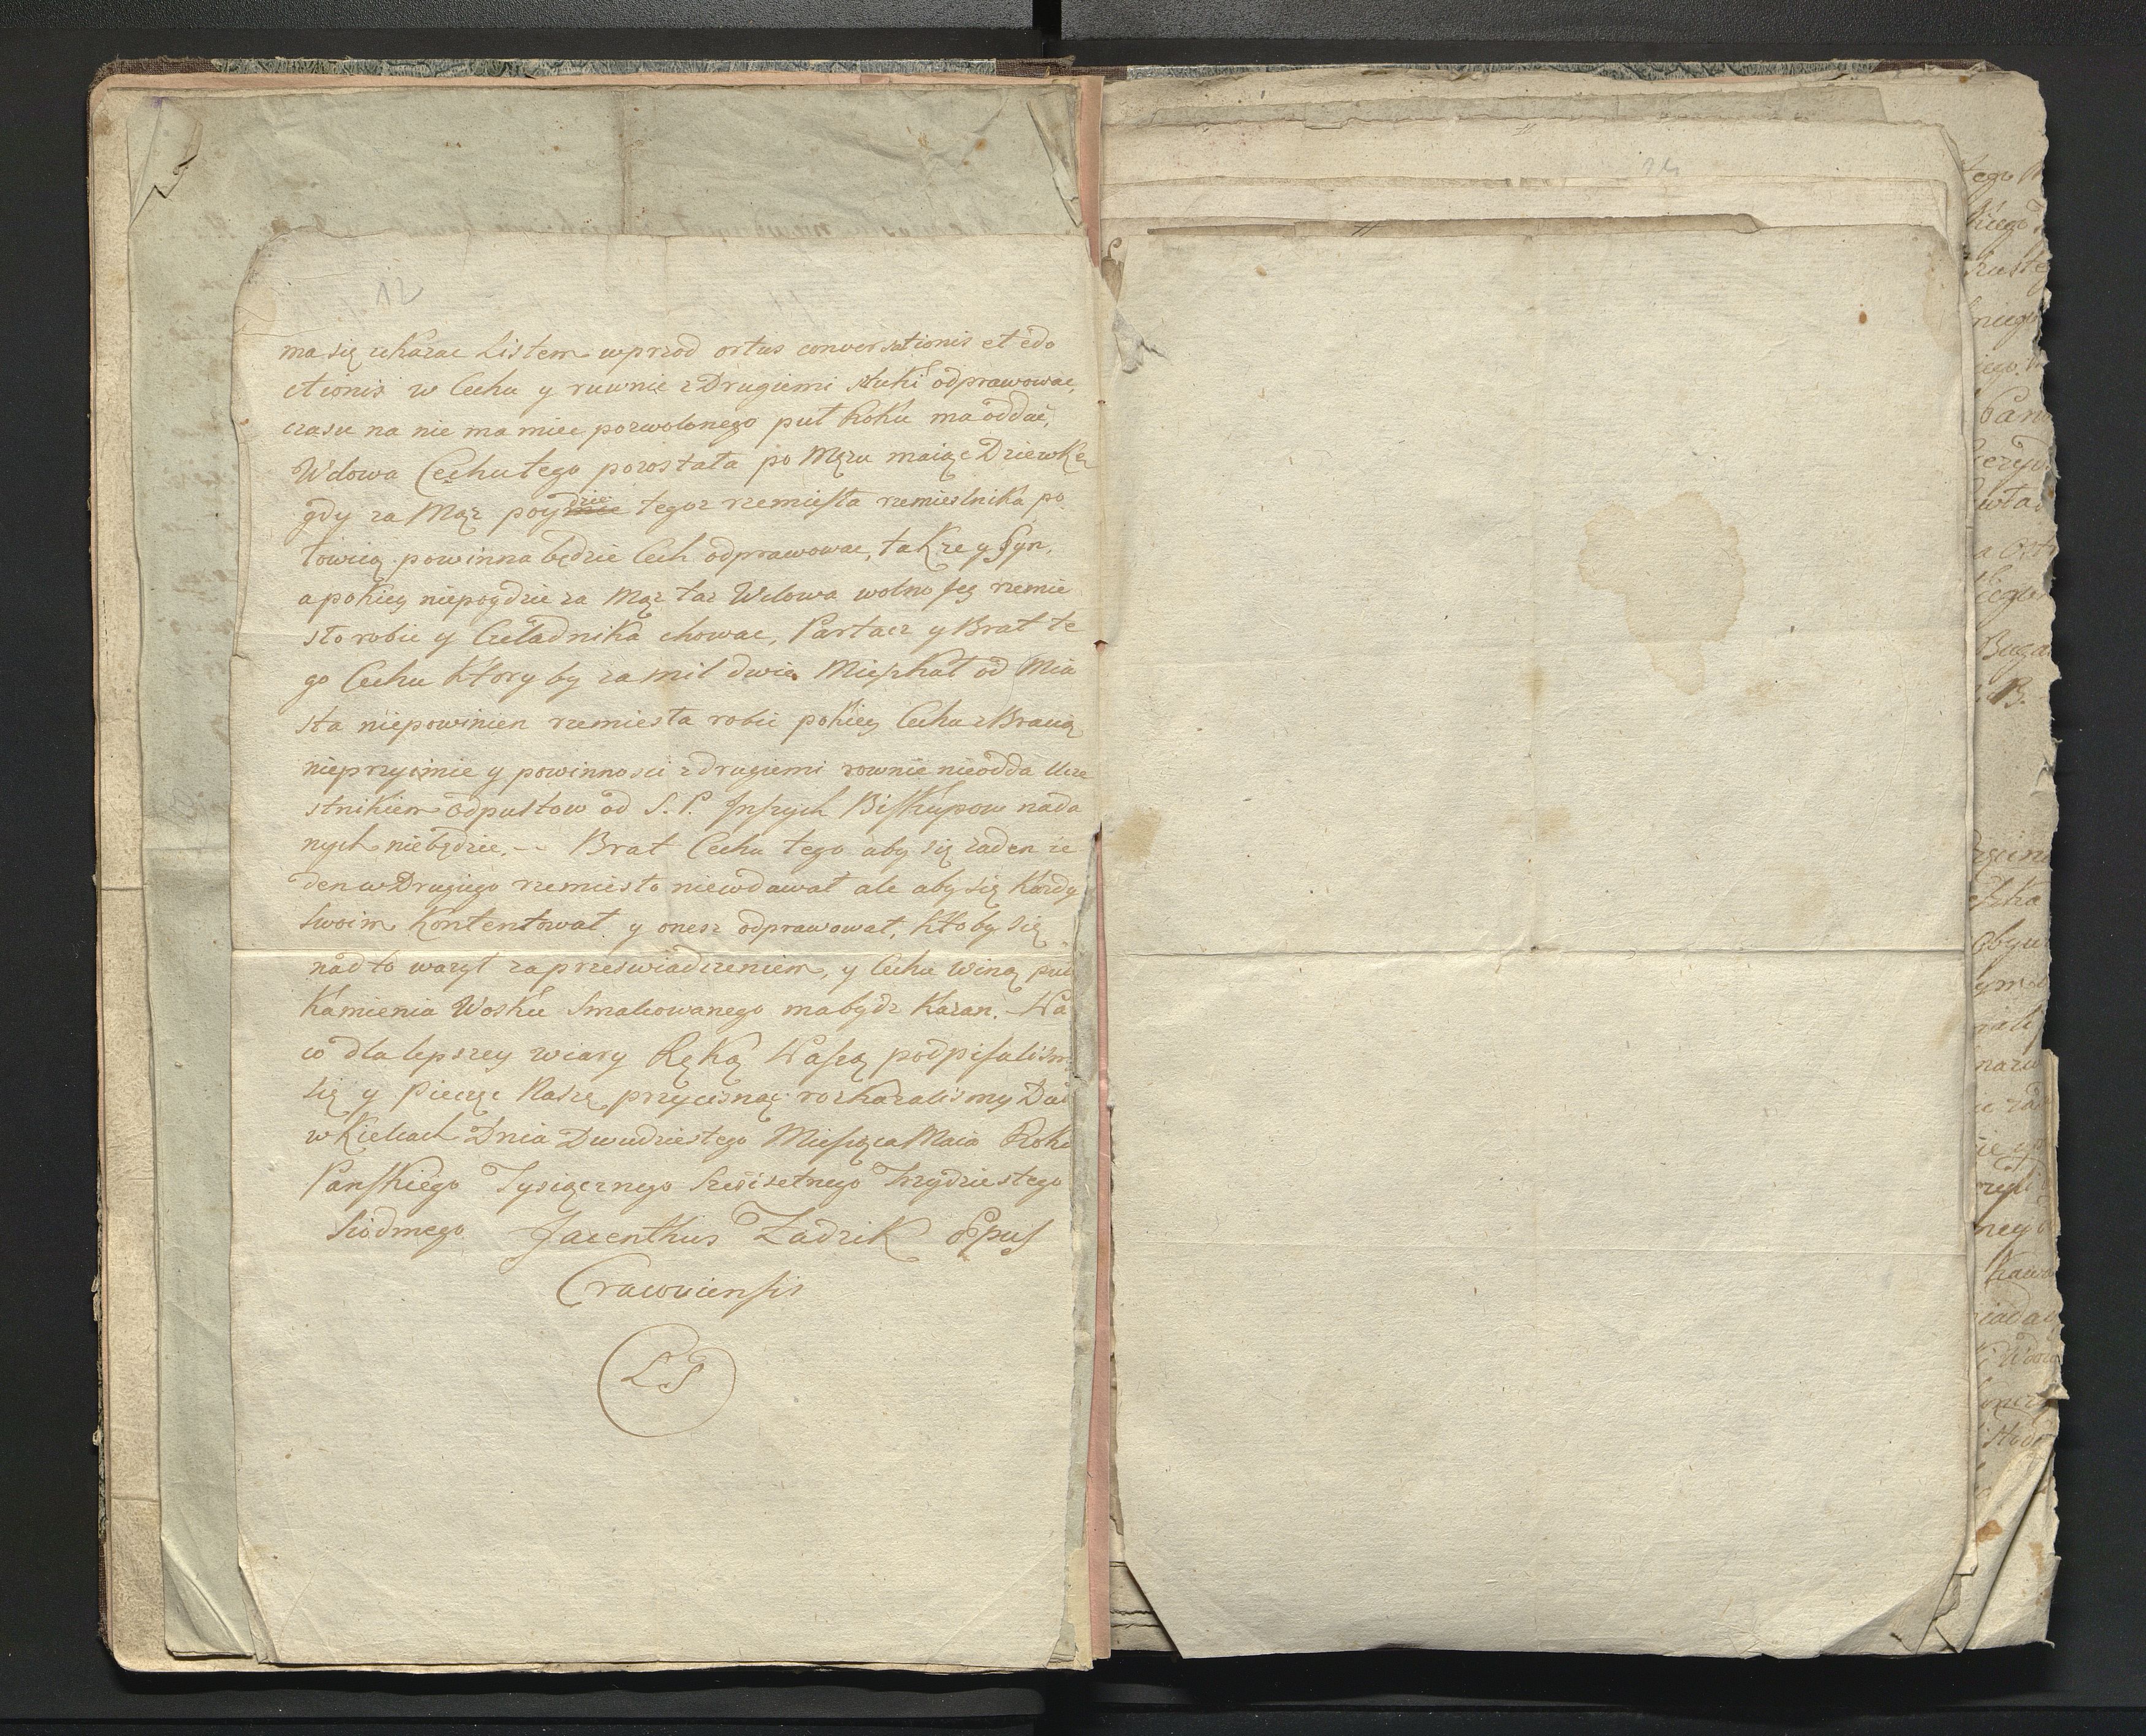 12
ma się ukazac Listem wprzod ortus conversationis et edu
ctionis w Cechu y ruwnie z Drugiemi sztuki odprawowac,
czasu na nie ma miec pozwolonego puł Roku ma oddać,
Wdowa Cechu tego pozostała po Mężu maiąc Dziewkę
gdy za Mąż poydzie tegoz rzemiesła rzemieslnika po
łowicą powinna będzie Cech odprawowac, takze y Syn,
a pokiey niepoydzie za Mąz taz Wdowa wolno Jey rzemie
sło robic y Czeladnika chowac, Partacz y Brat te
go Cechu Ktory by za mil dwie Mieszkał od Mia
sta niepowinien rzemiesła robic pokiey Cechu z Bracią
nieprzyimie y powinnosci z drugiemi rownie nieodda Ucze
stnikiem odpustow od S. P. Inszych Biskupow nada
nych niebędzie. -- Brat Cechu tego aby się zaden ie
den w Drugiego rzemiesło niewdawał ale aby się Kazdy
Swoim Kontentował y onesz odprawował, Ktoby się
nad to wazył za przeswiadczeniem, y Cechu winą puł
Kamienia Wosku Smalcowanego ma bydz Karan. Na
co dla lepszey wiary Ręką Naszą podpisalism
się y Pieczęc Naszę przycisnąc rozkazalismy Dat
w Kielcach Dnia Dwudziestego Miesiąca Maia Roku
Panskiego Tysiącznego Szescsetnego Trzydziestego
Siodmego Jacenthus Zadzik Eppus
Cracoviensis
LS